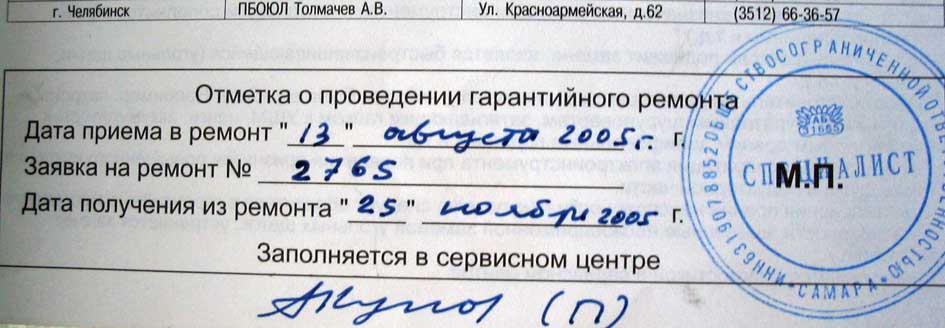 г. Челябинск ПБОЮЛ Толмачев А.В. Ул. Красноармейская, д.62 (3512) 66-36-57
Отметка о проведении гарантийного ремонта
Дата приема в ремонт " 13 " августа 2005г. г.
Заявка на ремонт № 2765
Дата получения из ремонта " 25 " ноября 2005 г.
Заполняется в сервисном центре
(П)
М.П.
ОБЩЕСТВО С ОГРАНИ�ченной ОТВЕТСТВЕННОСТЬЮ
СПЕЦИАЛИСТ
САМАРА